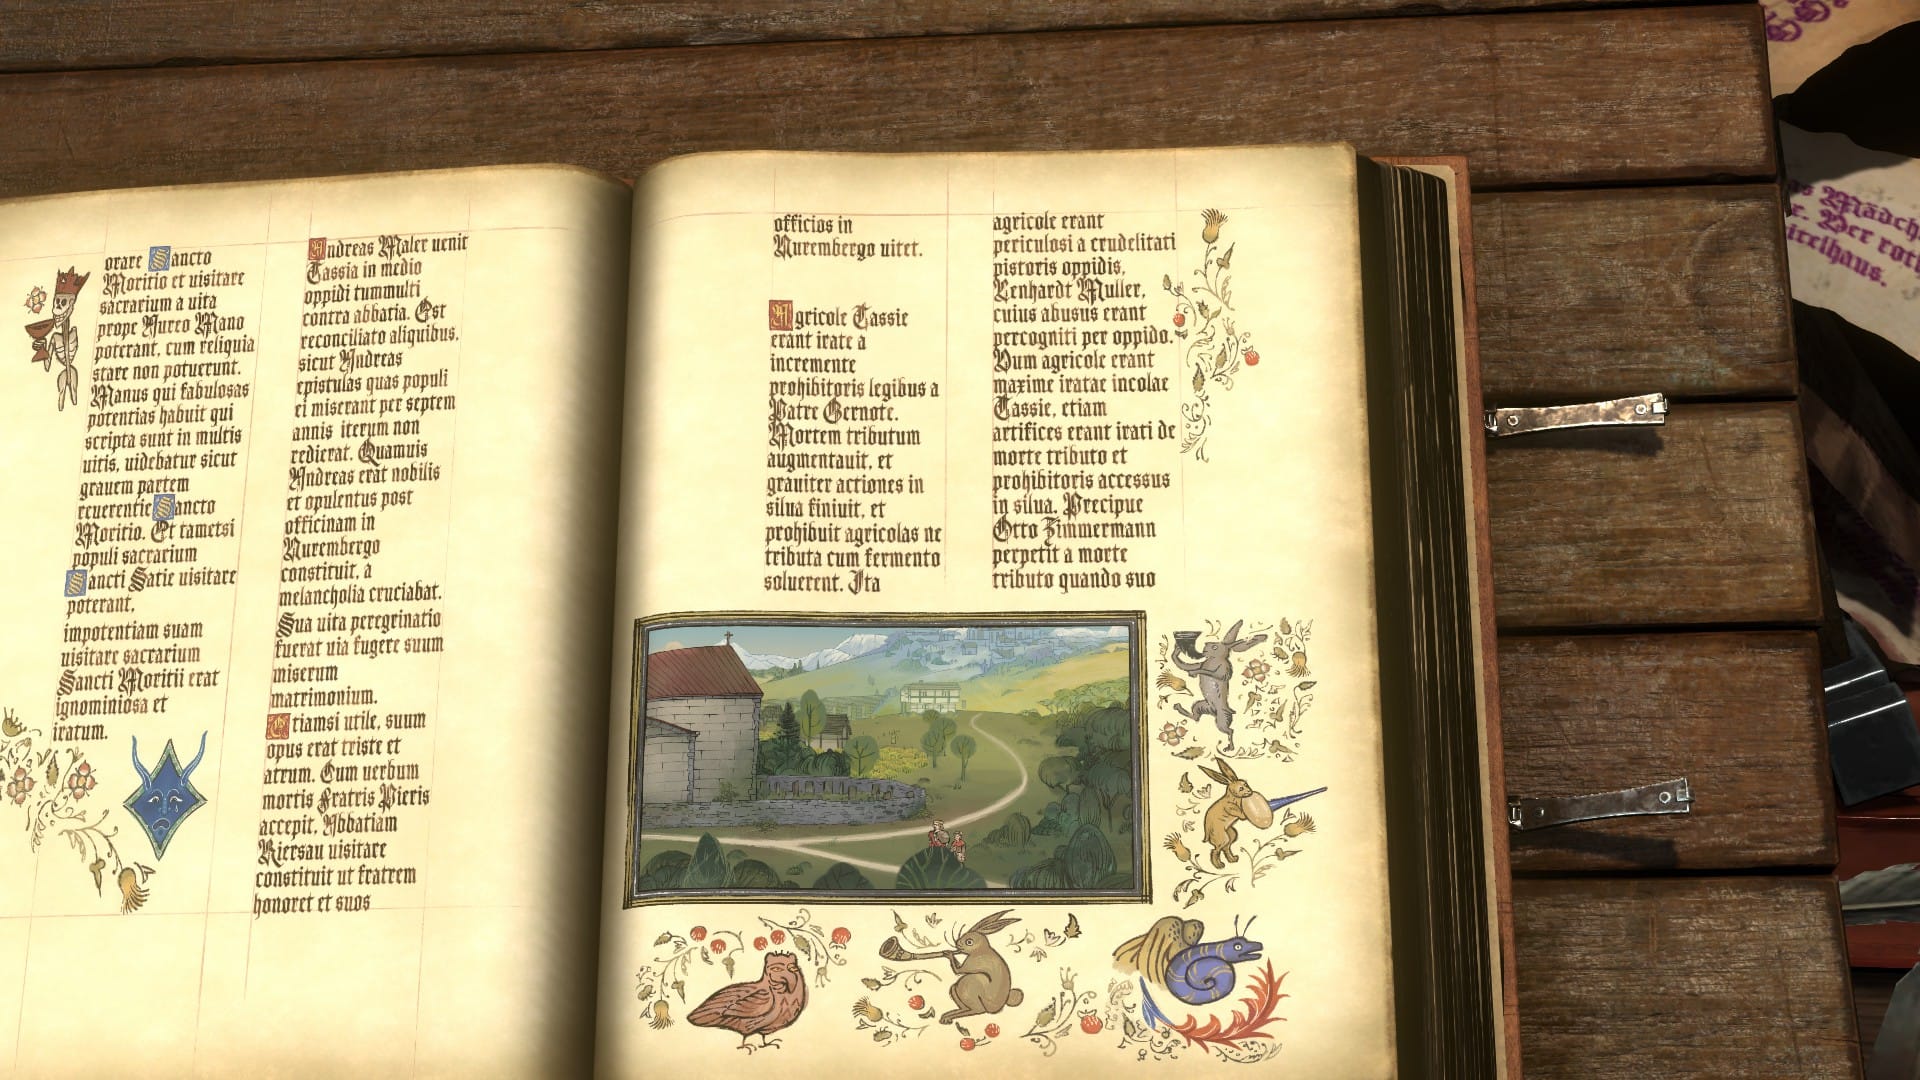 orare Sancto
Moritio et uisitare
sacrarium a uita
prope Aureo Mano
poterant, cum reliquia
stare non potuerunt.
Manus qui fabulosas
potentias habuit qui
scripta sunt in multis
uitis, uidebatur sicut
grauem partem
reuerentie Sancto
Moritio. Et tametsi
populi sacrarium
Sancti Satie uisitare
poterant,
impotentiam suam
uisitare sacrarium
Sancti Moritii erat
ignominiosa et
iratum.
Andreas Maler uenit
Tassia in medio
oppidi tummulti
contra abbatia. Est
reconciliato aliquibus,
sicut Andreas
epistulas quas populi
ei miserant per septem
annis iterum non
redierat. Quamuis
Andreas erat nobilis
et opulentus post
officinam in
Nurembergo
constituit, a
melancholia cruciabat.
Sua uita peregrinatio
fuerat uia fugere suum
miserum
matrimonium.
Etiamsi utile, suum
opus erat triste et
atrum. Cum uerbum
mortis Fratris Pieris
accepit, Abbatiam
Kiersau uisitare
constituit ut fratrem
honoret et suos
officios in
Nurembergo uitet.
Agricole Tassie
erant irate a
incremente
prohibitoris legibus a
Patre Gernote.
Mortem tributum
augmentauit, et
grauiter actiones in
silua finiuit, et
prohibuit agricolas ne
tributa cum fermento
soluerent. Ita
agricole erant
periculosi a crudelitati
pistoris oppidis,
Lenhardt Muller,
cuius abusus erant
percogniti per oppido.
Dum agricole erant
maxime iratae incolae
Tassie, etiam
artifices erant irati de
morte tributo et
prohibitoris accessus
in silua. Precipue
Otto Zimmermann
perpetit a morte
tributo quando suo
Mädch
r. Der rot
ittelhaus.